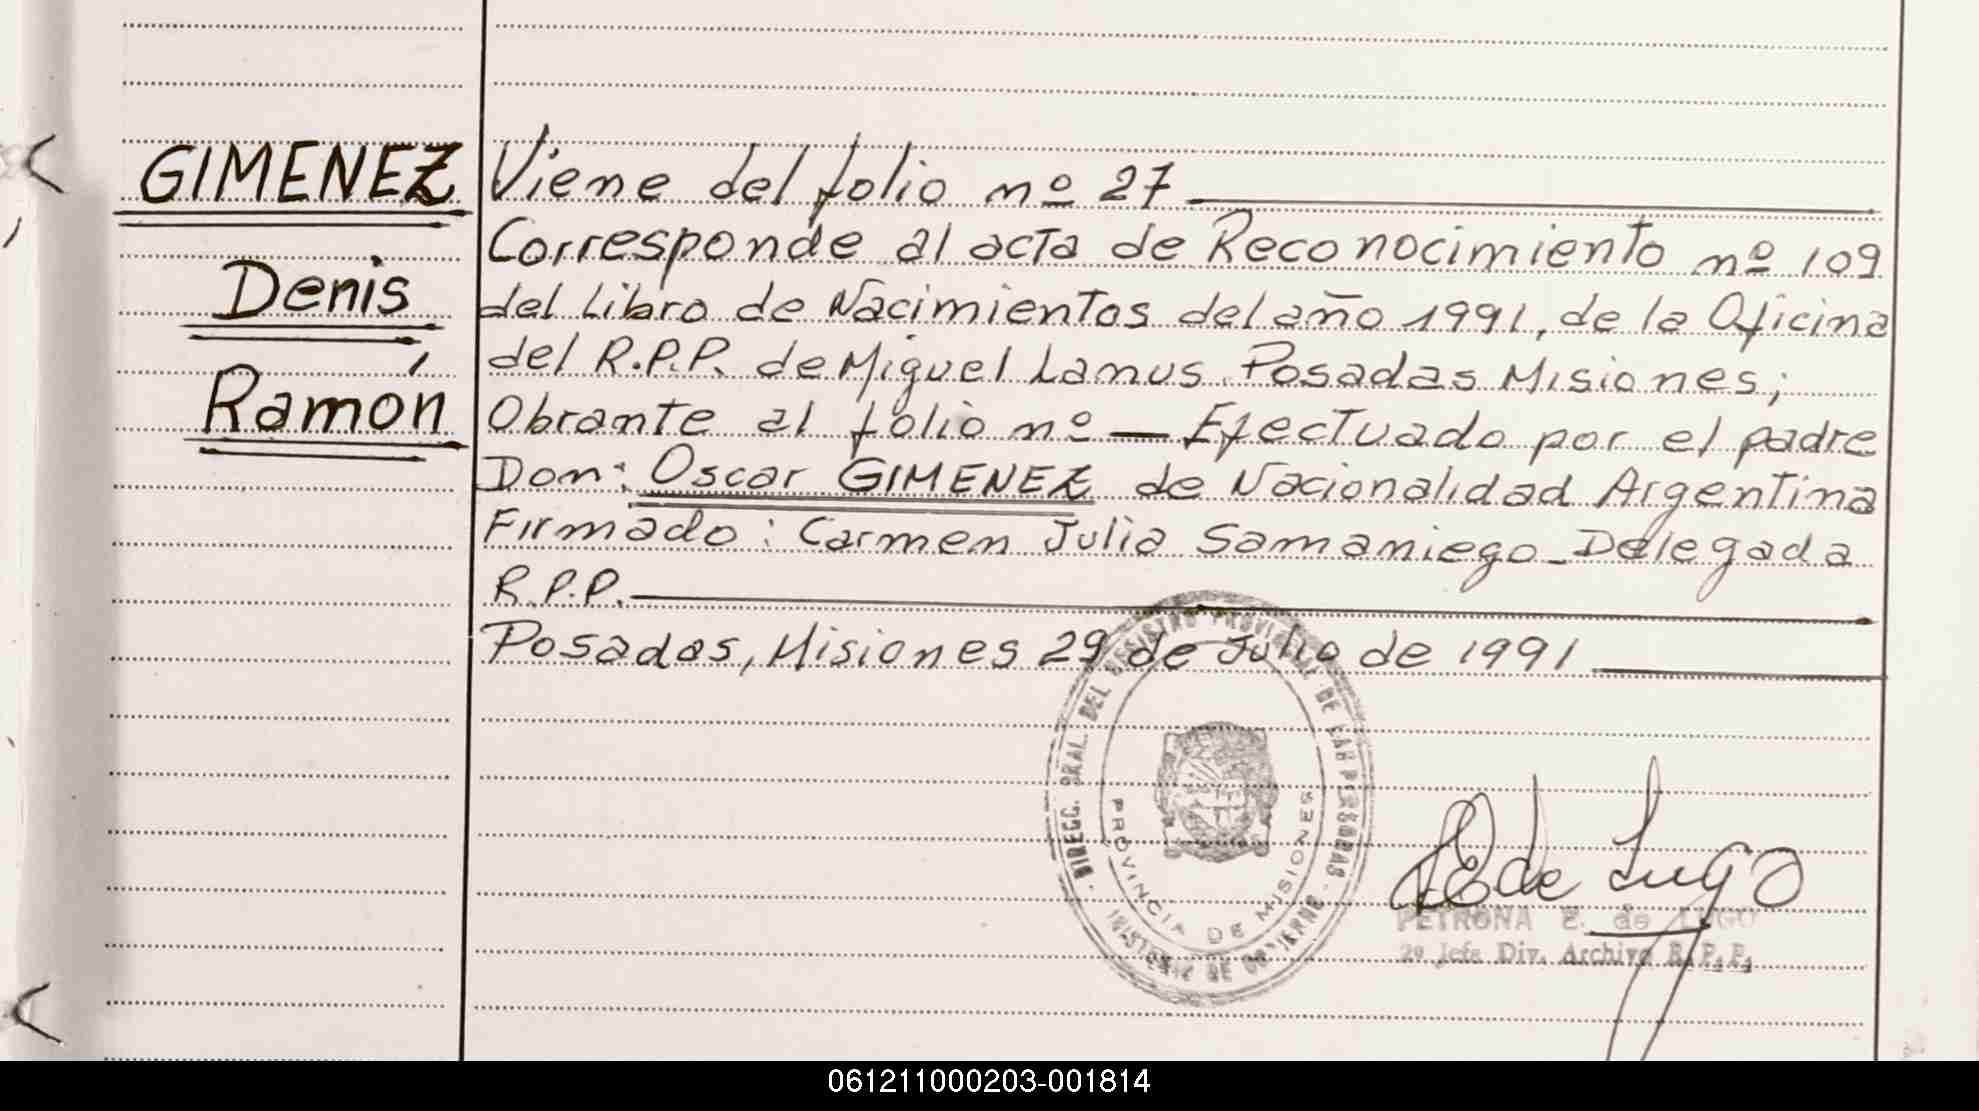 GIMENEZ
Denis
Ramón
Viene del folio nº 27
Corresponde al acta de Reconocimiento nº 109
del Libro de Nacimientos del año 1991, de la Oficina
del R.P.P. de Miguel Lanus Posadas Misiones;
Obrante al folio nº — Efectuado por el padre
Don: Oscar GIMENEZ de Nacionalidad Argentina
Firmado: Carmen Julia Samaniego - Delegada
R.P.P.
Posadas, Misiones 29 de Julio de 1991
DIRECC. GRAL. DEL REGISTRO PROVINCIAL DE LAS PERSONAS
MINISTERIO DE GOBIERNO
PROVINCIA DE MISIONES
E de Lugo
PETRONA E. de LUGO
2º Jefe Div. Archivo R.P.P.
061211000203-001814